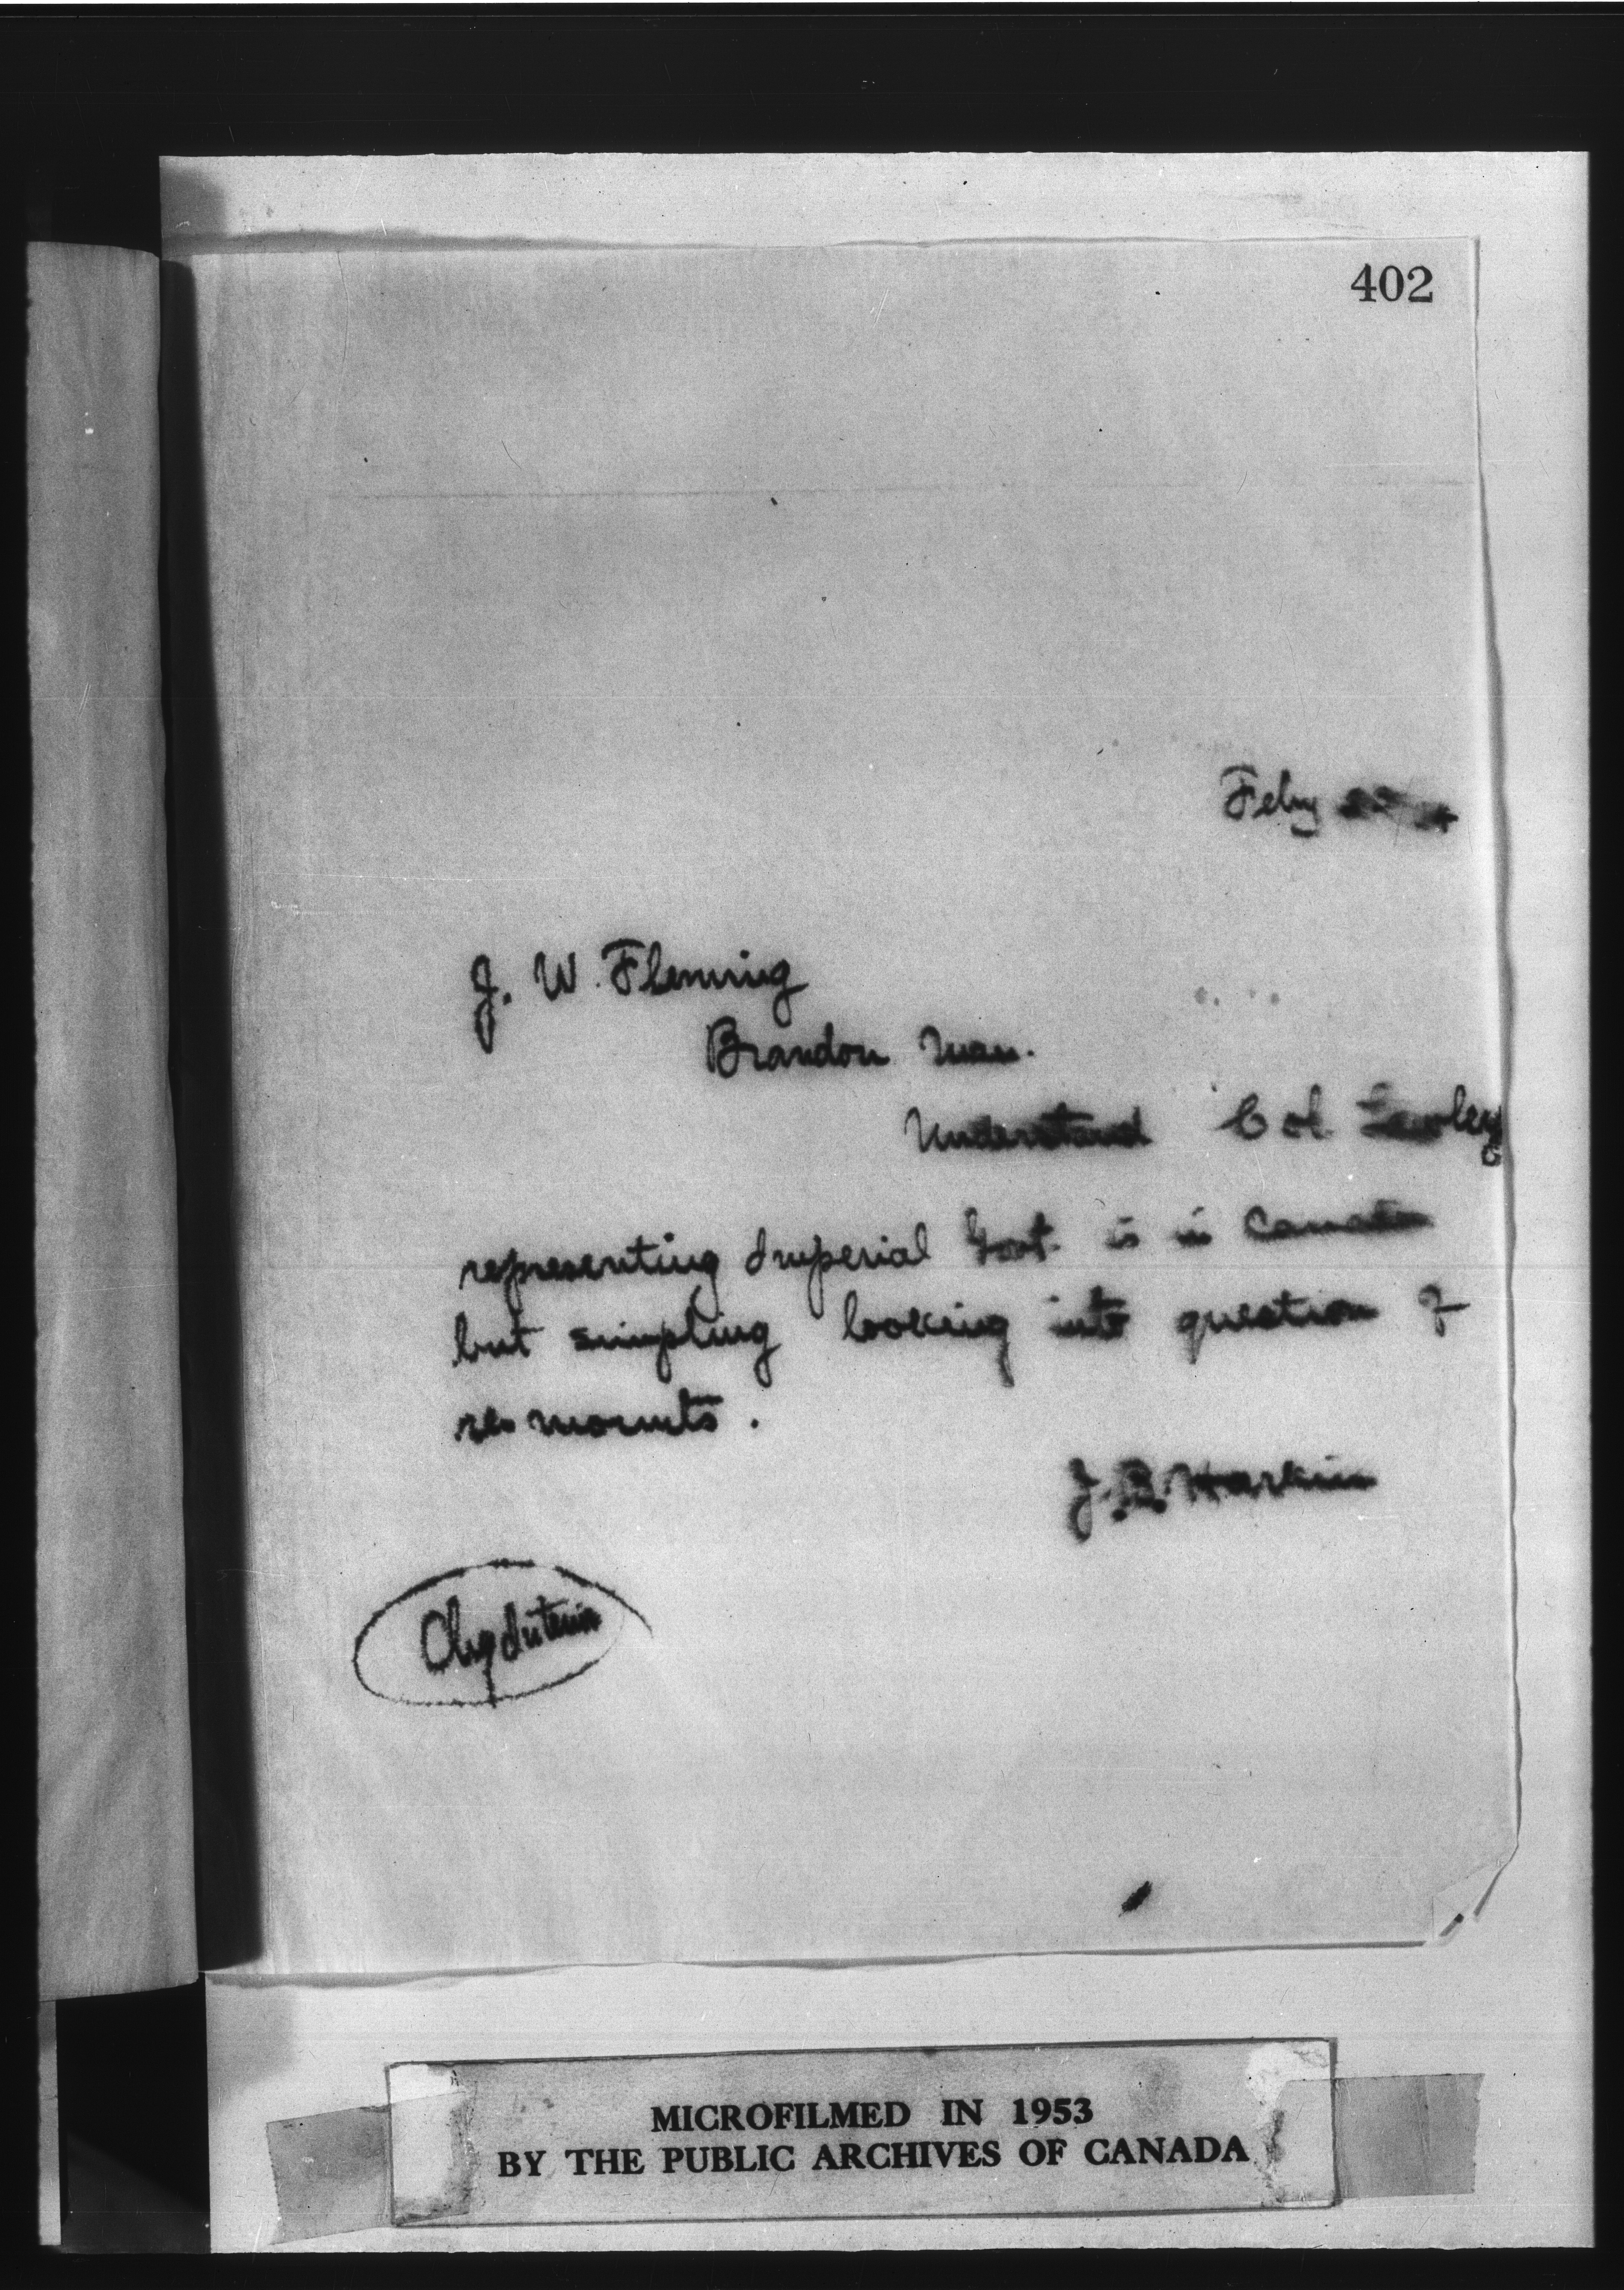 402
Feby
J. W. Fleming
Brandon Man.
Understand Col.
representing Imperial Govt. is in Canada
but simpling looking into question of
remounts.
J. B. Harkin
Chg Interior
MICROFILMED IN 1953
BY THE PUBLIC ARCHIVES OF CANADA